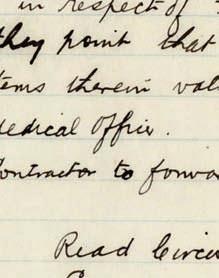 in respect of
they point that
tems therein val
Medical Officer.
Contractor to forwar
Read Circu